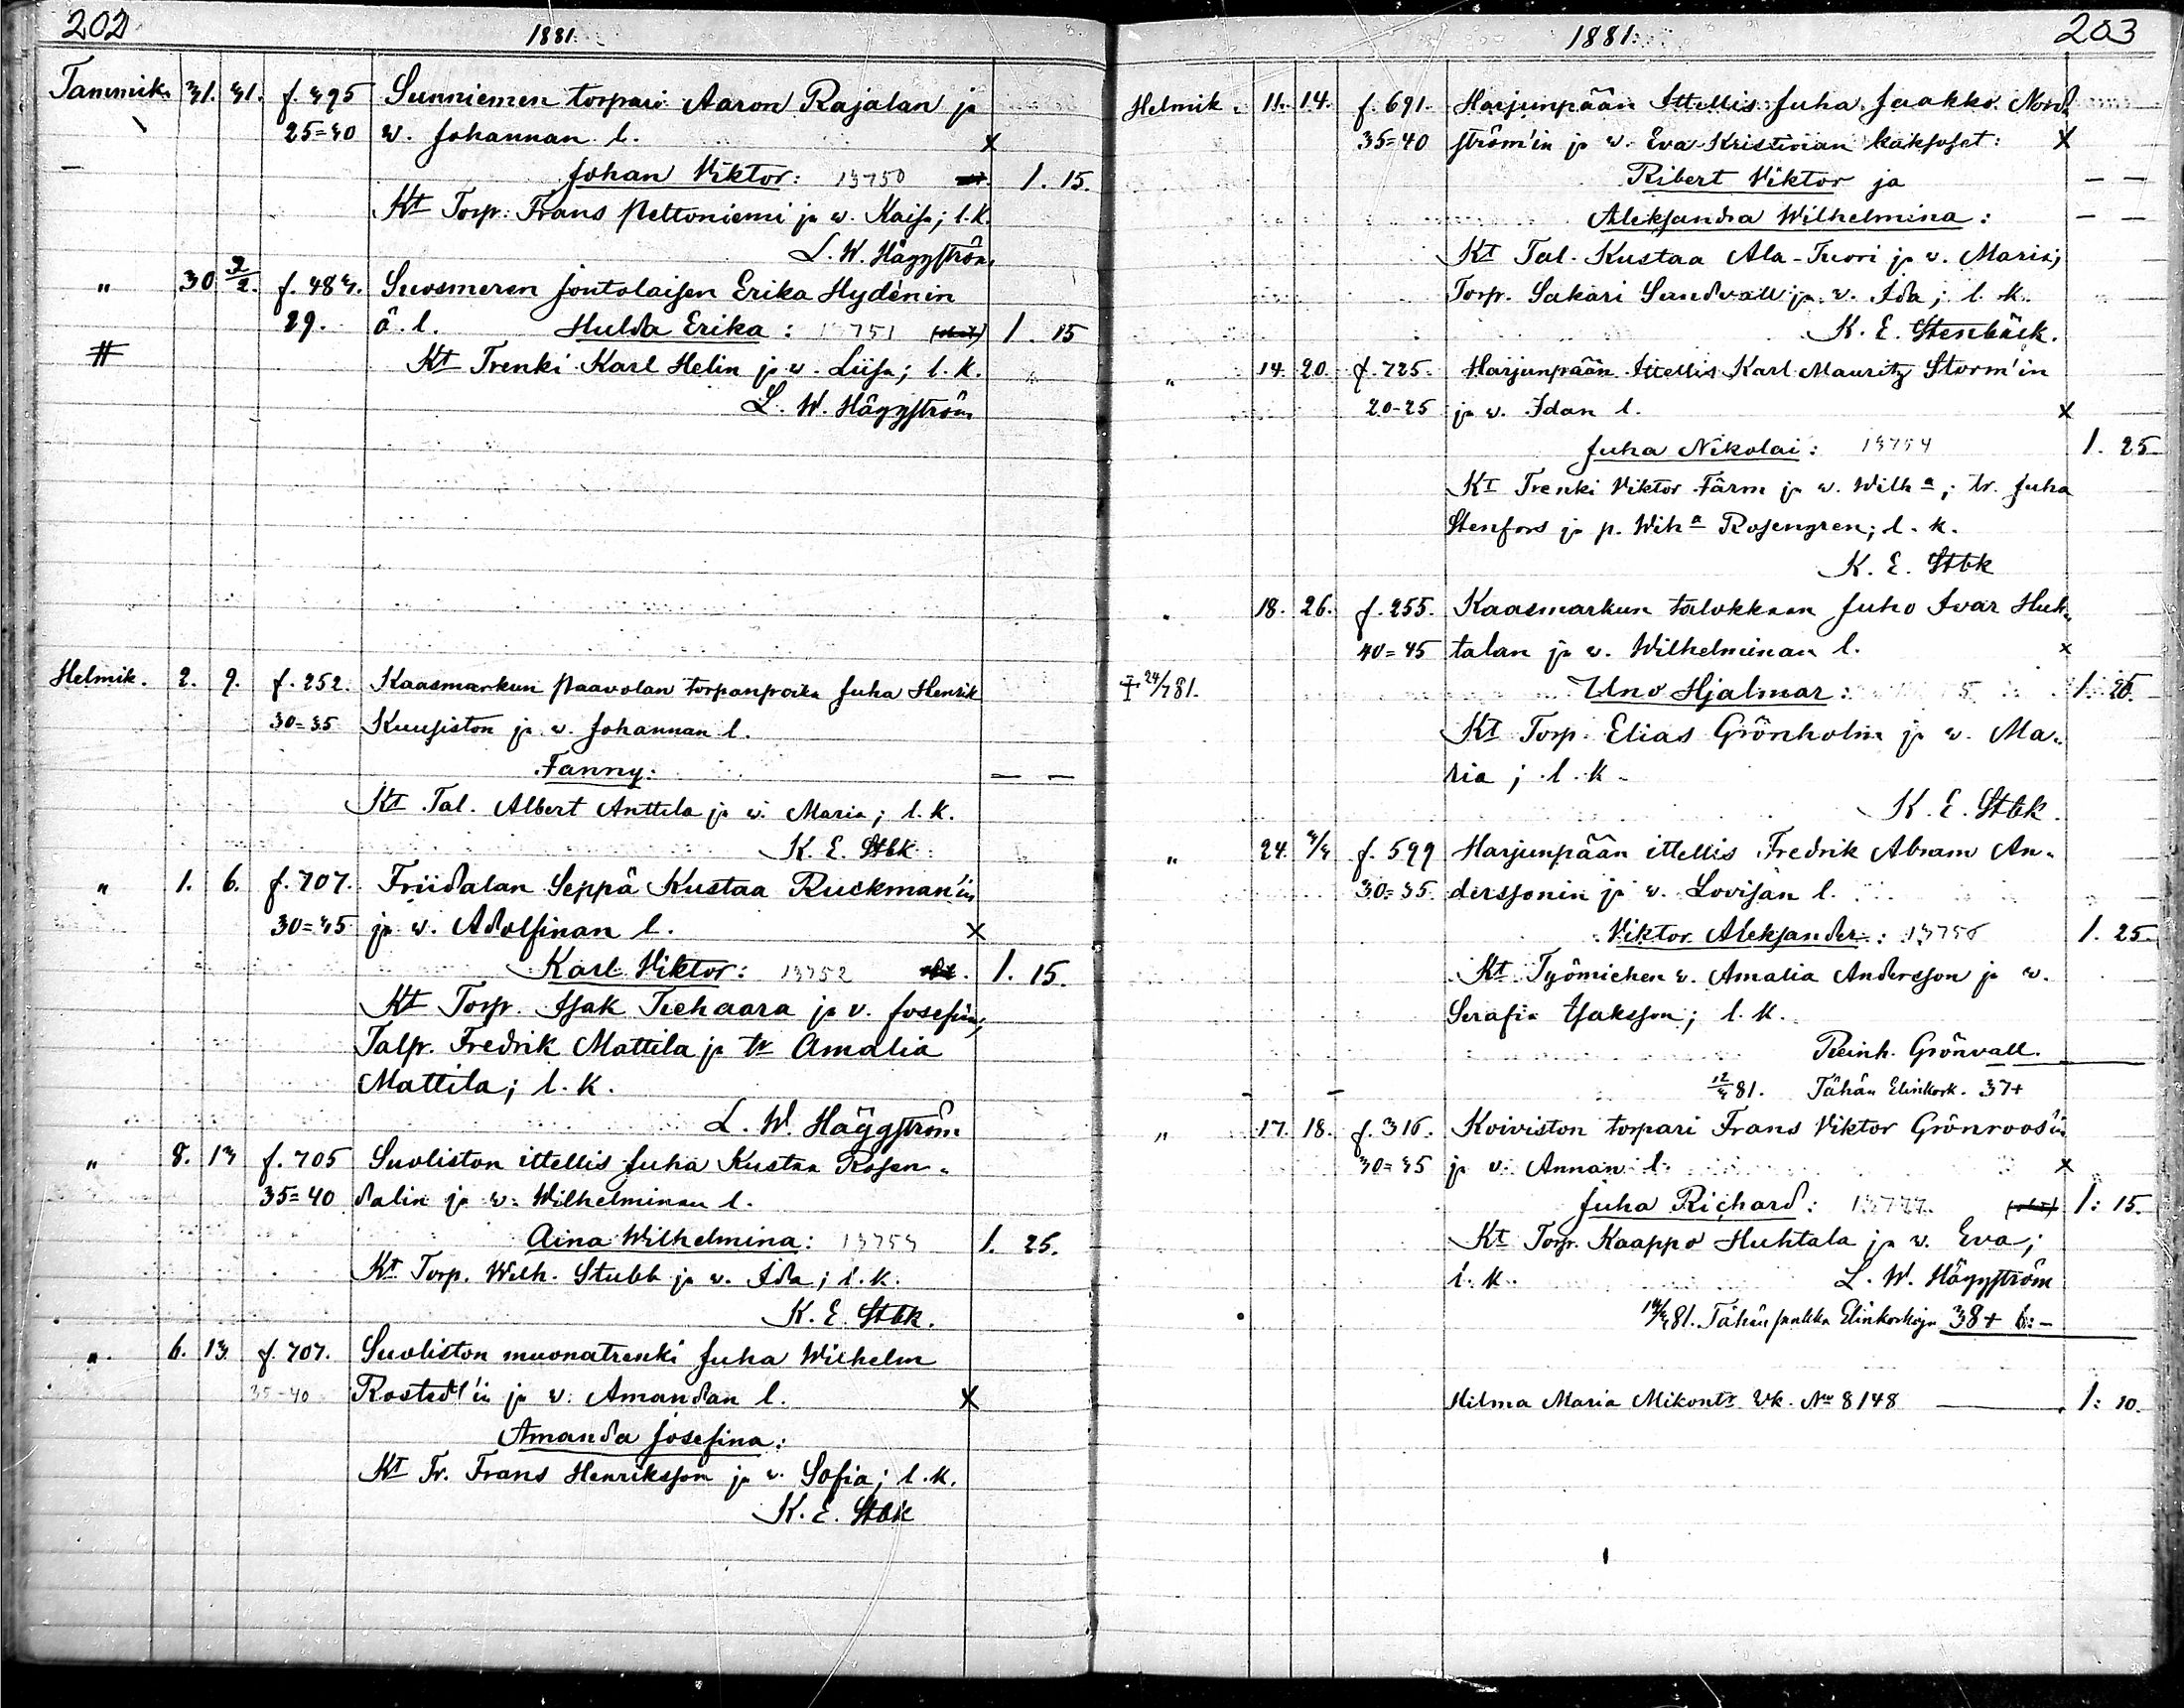 202
1881.
Tammik. 31. 31. f. 395 Sunniemen torpari Aaron Rajalan ja
25=30 w. Johannan l. x
Johan Viktor: 13750 1. 15.
Kt Torp. Frans Peltoniemi ja w. Kaisa; l. k.
L. W. Häggström
" 30 3/2. f. 483. Suosmeren Joutolaisen Erika Hydénin
29. ä. l. Hulda Erika: 13751 1. 15
Kt Trenki Karl Helin ja w. Liisa; l. k.
L. W. Häggström
Helmik. 2. 9. f. 252. Kaasmarkun Paavolan torpanpoika Juha Henrik
30=35 Kuusiston ja w. Johannan l.
Fanny: — —
Kt Tal. Albert Anttila ja w. Maria; l. k.
K. E. Stbk.
" 1. 6. f. 707. Friidalan Seppä Kustaa Ruckman'in
30=35 ja w. Adolfinan l. x
Karl Viktor: 13752 1. 15.
Kt Torp. Isak Tiehaara ja v. Josefin;
Talp. Fredrik Mattila ja tr Amalia
Mattila; l. k.
L. W. Häggström
" 8. 13 f. 705 Suoliston ittellis Juha Kustaa Rosen-
35=40 dalin ja w. Wilhelminan l.
Aina Wilhelmina: 13753 1. 25.
Kt Torp. Wilh. Stubb ja w. Ida; l. k.
K. E. Stbk.
" 6. 13 f. 707. Suoliston muonatrenki Juha Wilhelm
35-40 Rostedt'in ja w. Amandan l. x
Amanda Josefina:
Kt Tr. Frans Henriksson ja w. Sofia; l. k.
K. E. Stbk
1881.
203
Helmik. 11. 14. f. 691. Harjunpään Ittellis Juha Jaakko Nord-
35=40 ström'in ja w. Eva Kristinan kaksoset: x
Ribert Viktor ja — —
Aleksandra Wilhelmina: — —
Kt Tal. Kustaa Ala-Tuori ja w. Maria;
Torp. Sakari Sundvall ja w. Ida; l. k.
K. E. Stenbäck.
" 14. 20. f. 725. Harjunpään Ittellis Karl Mauritz Storm'in
20-25 ja w. Idan l. x
Juha Nikolai: 13754 1. 25
Kt Trenki Viktor Färm ja w. Wilha; tr. Juha
Stenfors ja p. Wiha Rosengren; l. k.
K. E. Stbk
" 18. 26. f. 255. Kaasmarkun talokkaan Juho Ivar Huh-
40=45 talan ja w. Wilhelminan l. x
† 24/7 81. Uno Hjalmar: 5 1. 25.
Kt Torp. Elias Grönholm ja w. Ma-
ria; l. k.
K. E. Stbk.
" 24. f. 599 Harjunpään ittellis Fredrik Abram An-
30=35. derssonin ja w. Lovisan l.
Viktor Aleksander: 13756 1. 25.
Kt Työmiehen w. Amalia Andersson ja w.
Serafia Isaksson; l. k.
Reinh. Grönvall.
81. Tähän Elinkork. 37+
" 17. 18. f. 316. Koiviston torpari Frans Viktor Grönroos'in
30=35 ja v. Annan l. x
Juha Richard: 1: 15.
Kt Torp. Kaappo Huhtala ja w. Eva;
l. k. L. W. Häggström
81. Tähän Elinkorkoja 38+ 6:-
Hilma Maria Mikontr Vk. No 8148 1: 10.